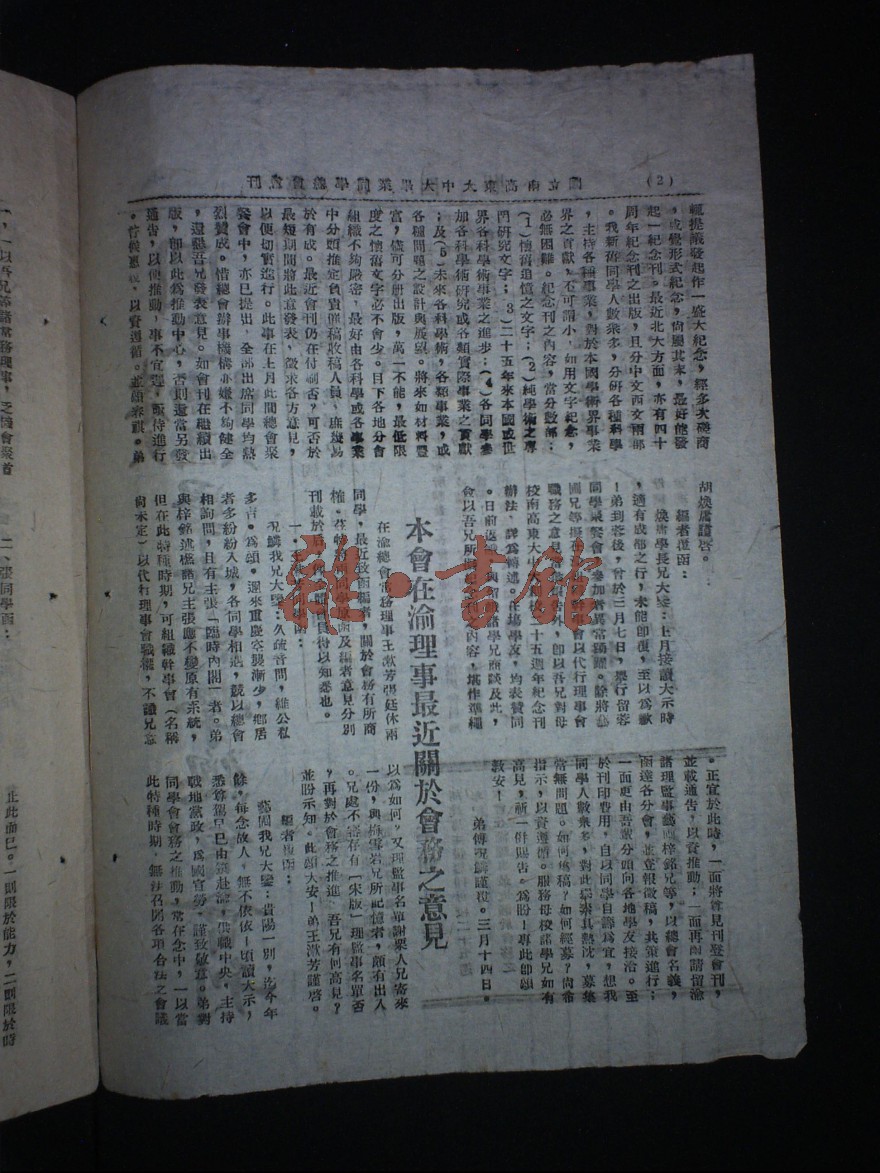 (2)
國立南高東大中大畢業同學總會會刊
輒提議發起作一盛大紀念,經多次磋商
,咸覺形式紀念,尙屬其末,最好能發
起一紀念刊。最近北大方面,亦有四十
周年紀念刊之出版,且分中文西文兩部
。我新舊同學人數衆多,分研各種科學
,主持各種事業,對於本國學術界事業
界之貢獻,不可謂小,如用文字紀念,
必無困難。紀念刊之內容,當分數部:
(1)懷舊追憶之文字;(2)純學術之專
門研究文字;(3)二十五年來本國或世
界各科學術事業之進步;(4)各同學參
加各科學術研究或各類實際事業之貢獻
;及(5)未來各科學術,各類事業,或
各種問題之設計與展望。將來如材料豐
富,儘可分册出版,萬一不能,最低限
度之懷舊文字必不會少。目下各地分會
組織不夠嚴密,最好由各科學或各事業
中分頭推定負責催稿收稿人員,庶幾易
於有成。最近會刊仍在付刷否?可否於
最短期間將此意發表,徵求各方意見,
以便切實進行。此事在上月此間總會聚
餐會中,亦已提出,全部出席同學均熱
烈贊成。惜總會辦事機構亦嫌不夠健全
,還懇吾兄發表意見。如會刊在繼續出
版,卽以此爲推動中心,否則還當另發
通告,以便推動,事不宜遲,
以資遵循。並頌春祺。弟
胡煥庸謹啓。
編者復函:
煥庸學長兄大鑒:上月接讀大示時
,適有成都之行,未能卽復,至以爲歉
!弟到蓉後,曾於三月七日,舉行留蓉
同學聚餐會,參加者異常踴躍。除將
幹事會以代行理事會
職務之意見 外,卽以吾兄對母
校南高東大中大 十五週年紀念刊
辦法,詳爲轉述。在場學友,均表贊同
。日前返 與留 諸學兄商談及此,
僉以吾兄所 內容,堪作準繩
。正宜於此時,一面將尊見刊登會刊,
並載通告,以資推動;一面再函請留渝
諸理監事 梓銘兄等,以總會名義,
函達各分會,並登報徵稿,共策進行;
一面更由吾 分頭向各地學友接洽。至
於刊印費用,自以同學自籌爲宜,想我
同學人數衆多,對此 熱忱,募集
當無問題。如何徵稿?如何經募?尙希
指示,以資遵循。服務母校諸學兄如有
高見,祈一併賜告。爲盼!專此卽頌
敎安!
弟傅況鱗謹復。三月十四日。
本會在渝理事最近關於會務之意見
在渝總會常務理事王漱芳張廷休兩
同學,最近致函編者,關於會務有所商
權。 及編者意見分別
刊載於 得以知悉也。
況鱗我兄大鑒:久疏音問,維公私
多吉。爲頌。邇來重慶空襲漸少,鄕居
者多紛紛入城,各同學相遇,競以總會
相詢問,且有主張「臨時內閣」者。弟
與梓銘述樵諸兄主張應不變原有系統,
但在此特種時期,可組織幹事會(名稱
尙未定)以代行理事會職權,不識兄意
以爲如何。又理監事名單謝棄人兄寄來
一份,與 雪岩兄所記憶者,頗有出入
。兄處不審存有「宋版」理監事名單否
?再對於會務之推進,吾兄有何高見?
並盼示知。此頌大安!弟王漱芳謹啓。
編者復函:
藝圃我兄大鑒:貴陽一別,迄今年
餘,每念故人,無不依依!頃讀大示,
悉尊駕早已由滇赴渝,供職中央,主持
戰地黨政,爲國宣勞,謹致敬意。弟對
同學會會務之推動,常存念中,一以當
此特種時期,無法召開各項合法之會議
一,一以吾兄等諸常務理事,乏機會聚首
二、張同學函:
止此而已。一則限於能力,二則限於時